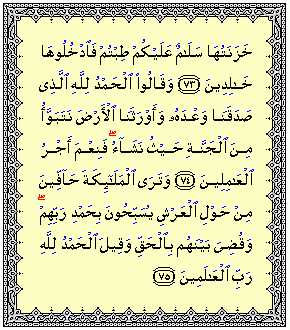 خَزَنَتُهَا سَلَٰمٌ عَلَيْكُمْ طِبْتُمْ فَٱدْخُلُوهَا
خَٰلِدِينَ ﴿٧٣﴾ وَقَالُوا۟ ٱلْحَمْدُ لِلَّهِ ٱلَّذِى
صَدَقَنَا وَعْدَهُۥ وَأَوْرَثَنَا ٱلْأَرْضَ نَتَبَوَّأُ
مِنَ ٱلْجَنَّةِ حَيْثُ نَشَآءُ ۖ فَنِعْمَ أَجْرُ
ٱلْعَٰمِلِينَ ﴿٧٤﴾ وَتَرَى ٱلْمَلَٰٓئِكَةَ حَآفِّينَ
مِنْ حَوْلِ ٱلْعَرْشِ يُسَبِّحُونَ بِحَمْدِ رَبِّهِمْ ۖ
وَقُضِىَ بَيْنَهُم بِٱلْحَقِّ وَقِيلَ ٱلْحَمْدُ لِلَّهِ
رَبِّ ٱلْعَٰلَمِينَ ﴿٧٥﴾